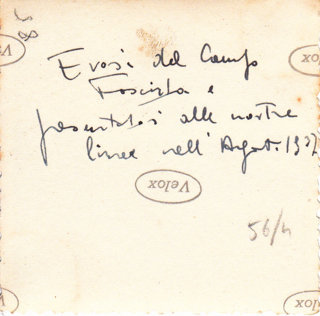 86
Evasi del Campo
Fascista e
presentatisi alle nostre
linee nell'Agost. 1937
Velox
Velox
Velox
Velox
Velox
56/4